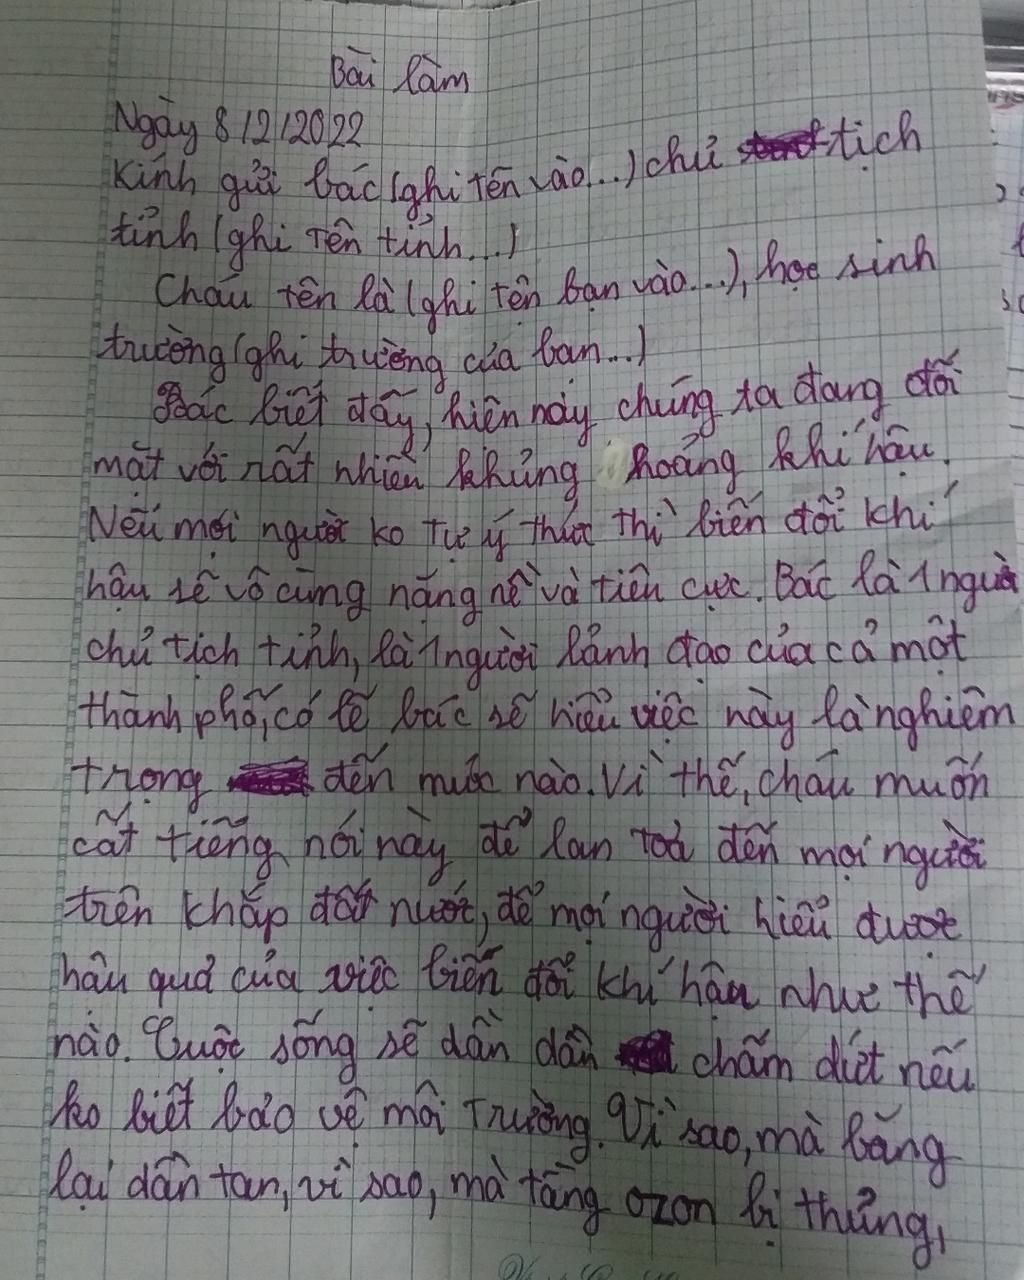 Bài làm
Ngày 8/2/2022
Kính gửi bác (ghi tên vào...) chủ tịch
tỉnh (ghi tên tỉnh...)
Cháu tên là (ghi tên bạn vào...), học sinh
trường (ghi trường của bạn...)
Bác biết đấy, hiện nay chúng ta đang đối
mặt với rất nhiều khủng hoảng khí hậu.
Nếu mọi người ko tự ý thức thì biến đổi khí
hậu sẽ vô cùng nặng nề và tiêu cực. Bác là 1 người
chủ tịch tỉnh, là 1 người lãnh đạo của cả một
thành phố, có lẽ bác sẽ hiểu việc này là nghiêm
trọng đến mức nào. Vì thế, cháu muốn
cất tiếng nói này để lan toả đến mọi người
trên khắp đất nước, để mọi người hiểu được
hậu quả của việc biến đổi khí hậu như thế
nào. Cuộc sống sẽ dần dần chấm dứt nếu
ko biết bảo vệ môi trường. Vì sao, mà băng
lại dần tan, vì sao, mà tầng ozon bị thủng,